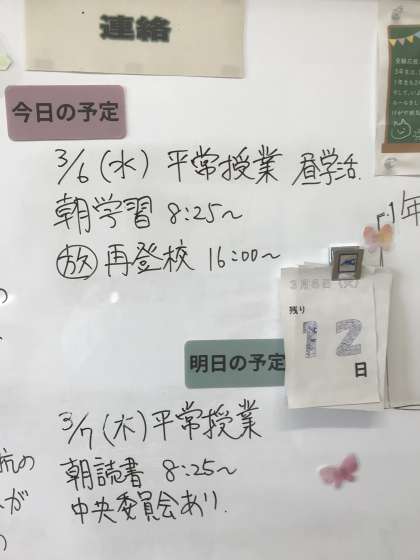 連絡
今日の予定
3/6(水) 平常授業 昼学活.
朝学習 8:25~
放 再登校 16:00~
残り
12
日
明日の予定
3/7(木)平常授業
朝読書 8:25~
中央委員会あり.